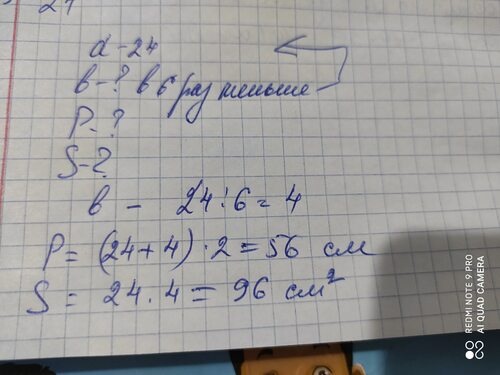 a - 24
в - ? в 6 раз меньше
P - ?
S - ?
в - 24 : 6 = 4
P = (24 + 4) · 2 = 56 см
S = 24 · 4 = 96 см²
REDMI NOTE 9 PRO
AI QUAD CAMERA